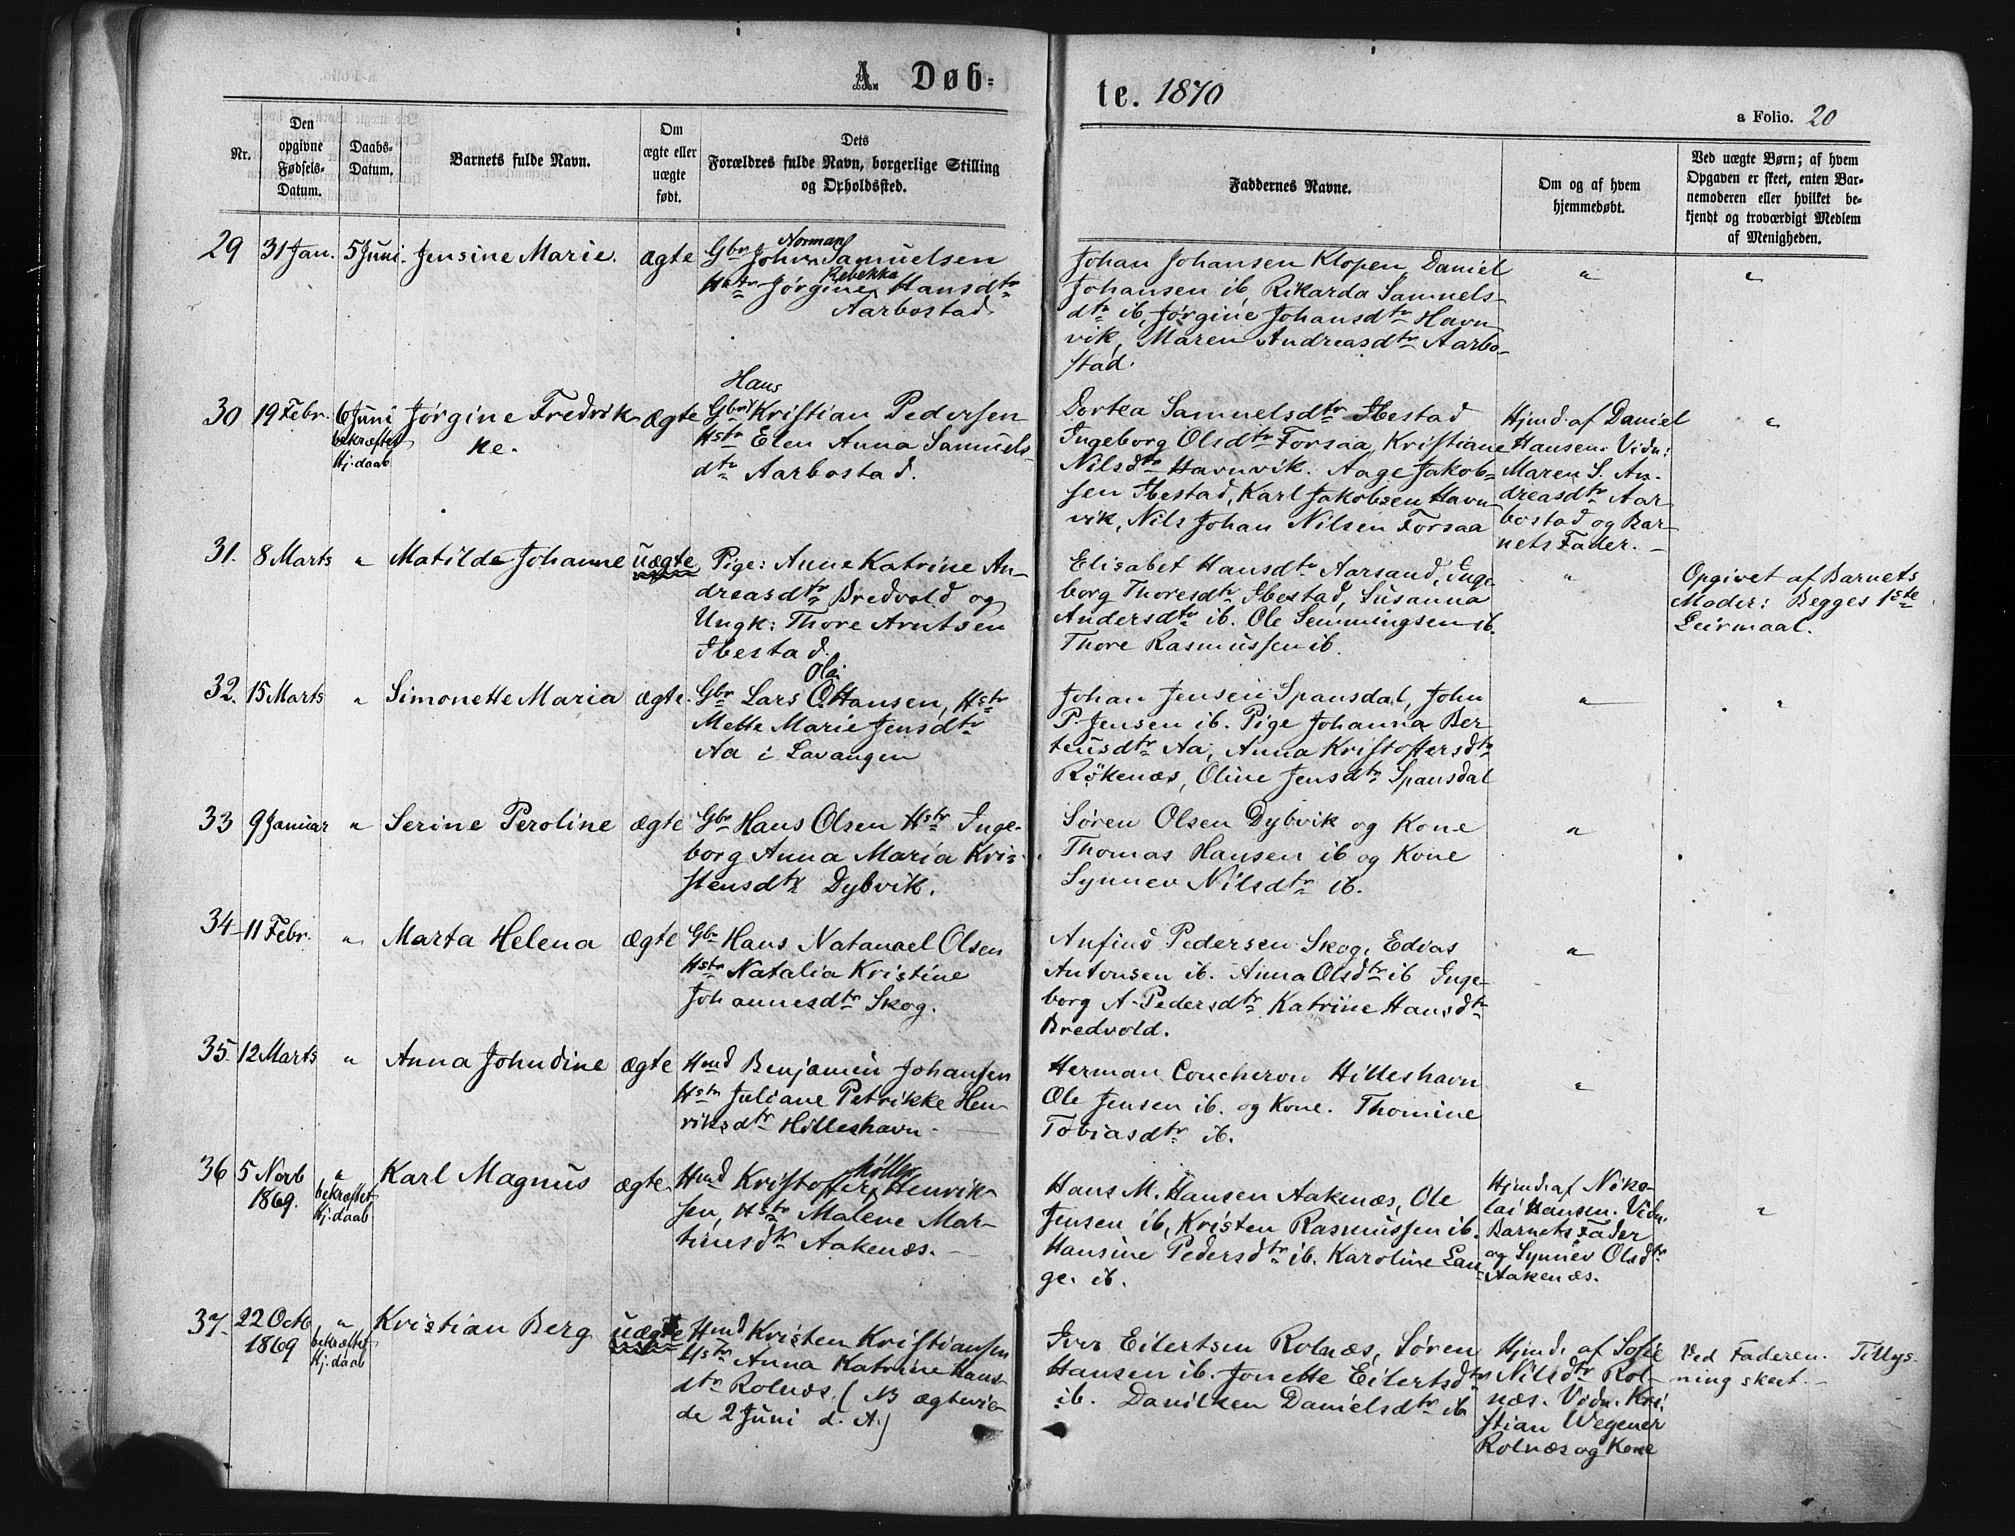 A Døb=
te. 1870
a Folio. 20
Nr.
Den
opgivne
Fødsels-
Datum.
Daabs-
Datum.
Barnets fulde Navn.
Om
ægte eller
uægte
født.
Dets
Forældres fulde Navn, borgerlige Stilling
og Opholdssted.
Faddernes Navne.
Om og af hvem
hjemmedøbt.
Ved uægte Børn; af hvem
Opgaven er skeet, enten Bar-
nemoderen eller hvilket be-
kjendt og troværdigt Medlem
af Menigheden.
29 31 Jan. 5 Juni. Jensine Marie. ægte
Norman
Gbr Johan Samuelsen
Rebekka
Hstr Jørgine Hansdtr
Aarbostad
Johan Johansen Klopen, Daniel
Johansen ib, Rikarda Samuels-
dtr ib, Jørgine Johansdtr Havn-
vik, Maren Andreasdtr Aarbo-
stad.
"
"
30 19 Febr. 6 Juni
bekræftet
Hj. daab
Jørgine Fredrik-
ke.
ægte
Hans
Gbr Kristian Pedersen
Hstr Elen Anna Samuels-
dtr Aarbostad.
Dortea Samuelsdtr Ibestad
Ingeborg Olsdtr Forsaa, Kristiane
Nilsdtr Havnvik. Aage Jakob-
sen Ibestad, Karl Jakobsen Havn-
vik, Nils Johan Nilsen Forsaa
Hjmd. af Daniel
Hansen. Vidn:
Maren S. An-
dreasdtr Aar-
bostad og Bar-
nets Fader. -
"
31. 8 Marts " Matilde Johanne uægte
Pige: Anne Katrine An-
dreasdtr Bredvold og
Ungk: Thore Arntsen
Ibestad.
Elisabet Hansdtr Aarsand, Inge-
borg Thoresdtr Ibestad, Susanna
Andersdtr ib. Ole Semmingsen ib.
Thore Rasmussen ib.
"
Opgivet af Barnets
Moder: Begges 1ste
Leirmaal.
32. 15 Marts " Simonette Maria ægte.
Olai
Gbr Lars O. Hansen, Hstr
Mette Marie Jensdtr
Aa i Lavangen
Johan Jensen Spansdal, John
P. Jensen ib. Pige Johanna Ber-
teusdtr Aa, Anna Kristoffersdtr
Røkenæs, Oline Jensdtr Spansdal
"
"
33 9 Januar " Serine Peroline ægte
Gbr Hans Olsen Hstr Inge-
borg Anna Maria Kris-
stensdtr Dybvik.
Søren Olsen Dybvik og Kone
Thomas Hansen ib og Kone
Synnev Nilsdtr ib.
"
34 11 Febr. " Marta Helena ægte
Gbr Hans Natanael Olsen
Hstr Natalia Kristine
Johannesdtr Skog.
Anfind Pedersen Skog, Edvas
Antonsen ib. Anna Olsdtr ib Inge-
borg A. Pedersdtr Katrine Hansdtr
Bredvold.
"
35. 12 Marts " Anna Johndine ægte
Hmd Benjamin Johansen
Hstr Juliane Petrikke Hen-
riksdtr Hilleshavn -
Herman Coucheron Hilleshavn
Ole Jensen ib. og Kone. Thomine
Tobiasdtr ib.
"
36 5 Novb
1869.
"
bekræftet
Hj. daab
Karl Magnus ægte
Møller
Hmd Kristoffer Henrik-
sen, Hstr Malene Mar-
tinesdtr Aakenæs. -
Hans M. Hansen Aakenæs, Ole
Jensen ib, Kristen Rasmussen ib.
Hansine Pedersdtr ib. Karoline Lan-
ge. ib.
Hjmd. af Niko-
lai Hansen. Vidn.
Barnets Fader
og Synnev Olsdtr
Aakenæs.
"
37. 22 Octb
1869
"
bekræftet
Hj. daab
Kristian Berg uægte
Hmd Kristen Kristiansen
Hstr Anna Katrine Hans-
dtr Rolnæs. (NB ægtevie-
de 2 Juni d. A.)
Iver Eilertsen Rolnæs, Søren
Hansen ib. Jonette Eilertsdtr
ib. Danilken Danielsdtr ib
Hjmd. af Sofie
Nilsdtr Rol-
næs. Vidn. Kri-
stian Wegener
Rolnæs og Kone
Ved Faderen. Tillys-
ning skeet. -